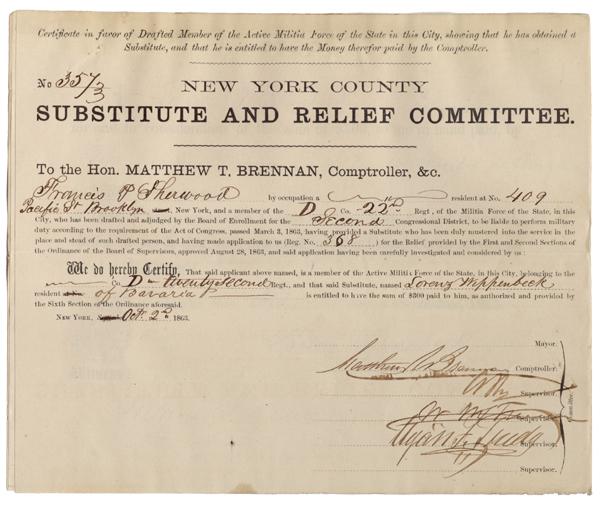 Certificate in favor of Drafted Member of the Active Militia Force of the State in this City, showing that he has obtained a
Substitute, and that he is entitled to have the Money therefor paid by the Comptroller.
No 357/3
NEW YORK COUNTY
SUBSTITUTE AND RELIEF COMMITTEE.
To the Hon. MATTHEW T. BRENNAN, Comptroller, &c.
Francis P Sherwood by occupation a resident at No. 409
Pacific St Brooklyn New York, and a member of the D Co. 22d Regt, of the Militia Force of the State, in this
City, who has been drafted and adjudged by the Board of Enrollment for the Second Congressional District, to be liable to perform military
duty according to the requirement of the Act of Congress, passed March 3, 1863, having provided a Substitute who has been duly mustered into the service in the
place and stead of such drafted person, and having made application to us (Reg. No. 368) for the Relief provided by the First and Second Sections of
the Ordinance of the Board of Supervisors, approved August 28, 1863, and said application having been carefully investigated and considered by us:
We do hereby Certify, That said applicant above named, is a member of the Active Militia Force of the State, in this City, belonging to the
Co. D - twenty Second Regt., and that said Substitute, named Lorenz Wippenbeck
resident of Bavaria is entitled to have the sum of $300 paid to him, as authorized and provided by
the Sixth Section of the Ordinance aforesaid.
NEW YORK, Oct. 2d 1863.
Mayor.
Comptroller.
Supervisor.
Supervisor.
Supervisor.
Supervisor.
Committee.